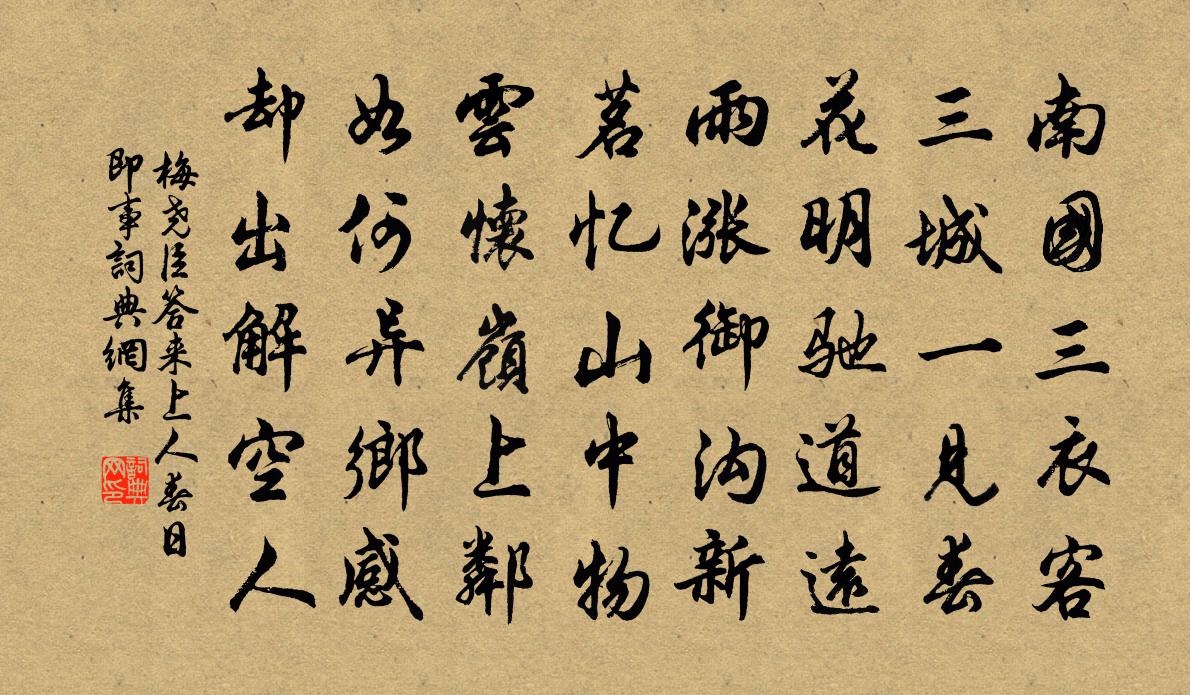 南國三衣客
三城一見春
花明馳道遠
雨漲御沟新
茗忆山中物
雲懷嶺上鄰
如何异鄉感
却出解空人
梅尧臣答来上人春日
即事詞典網集
詞典网印